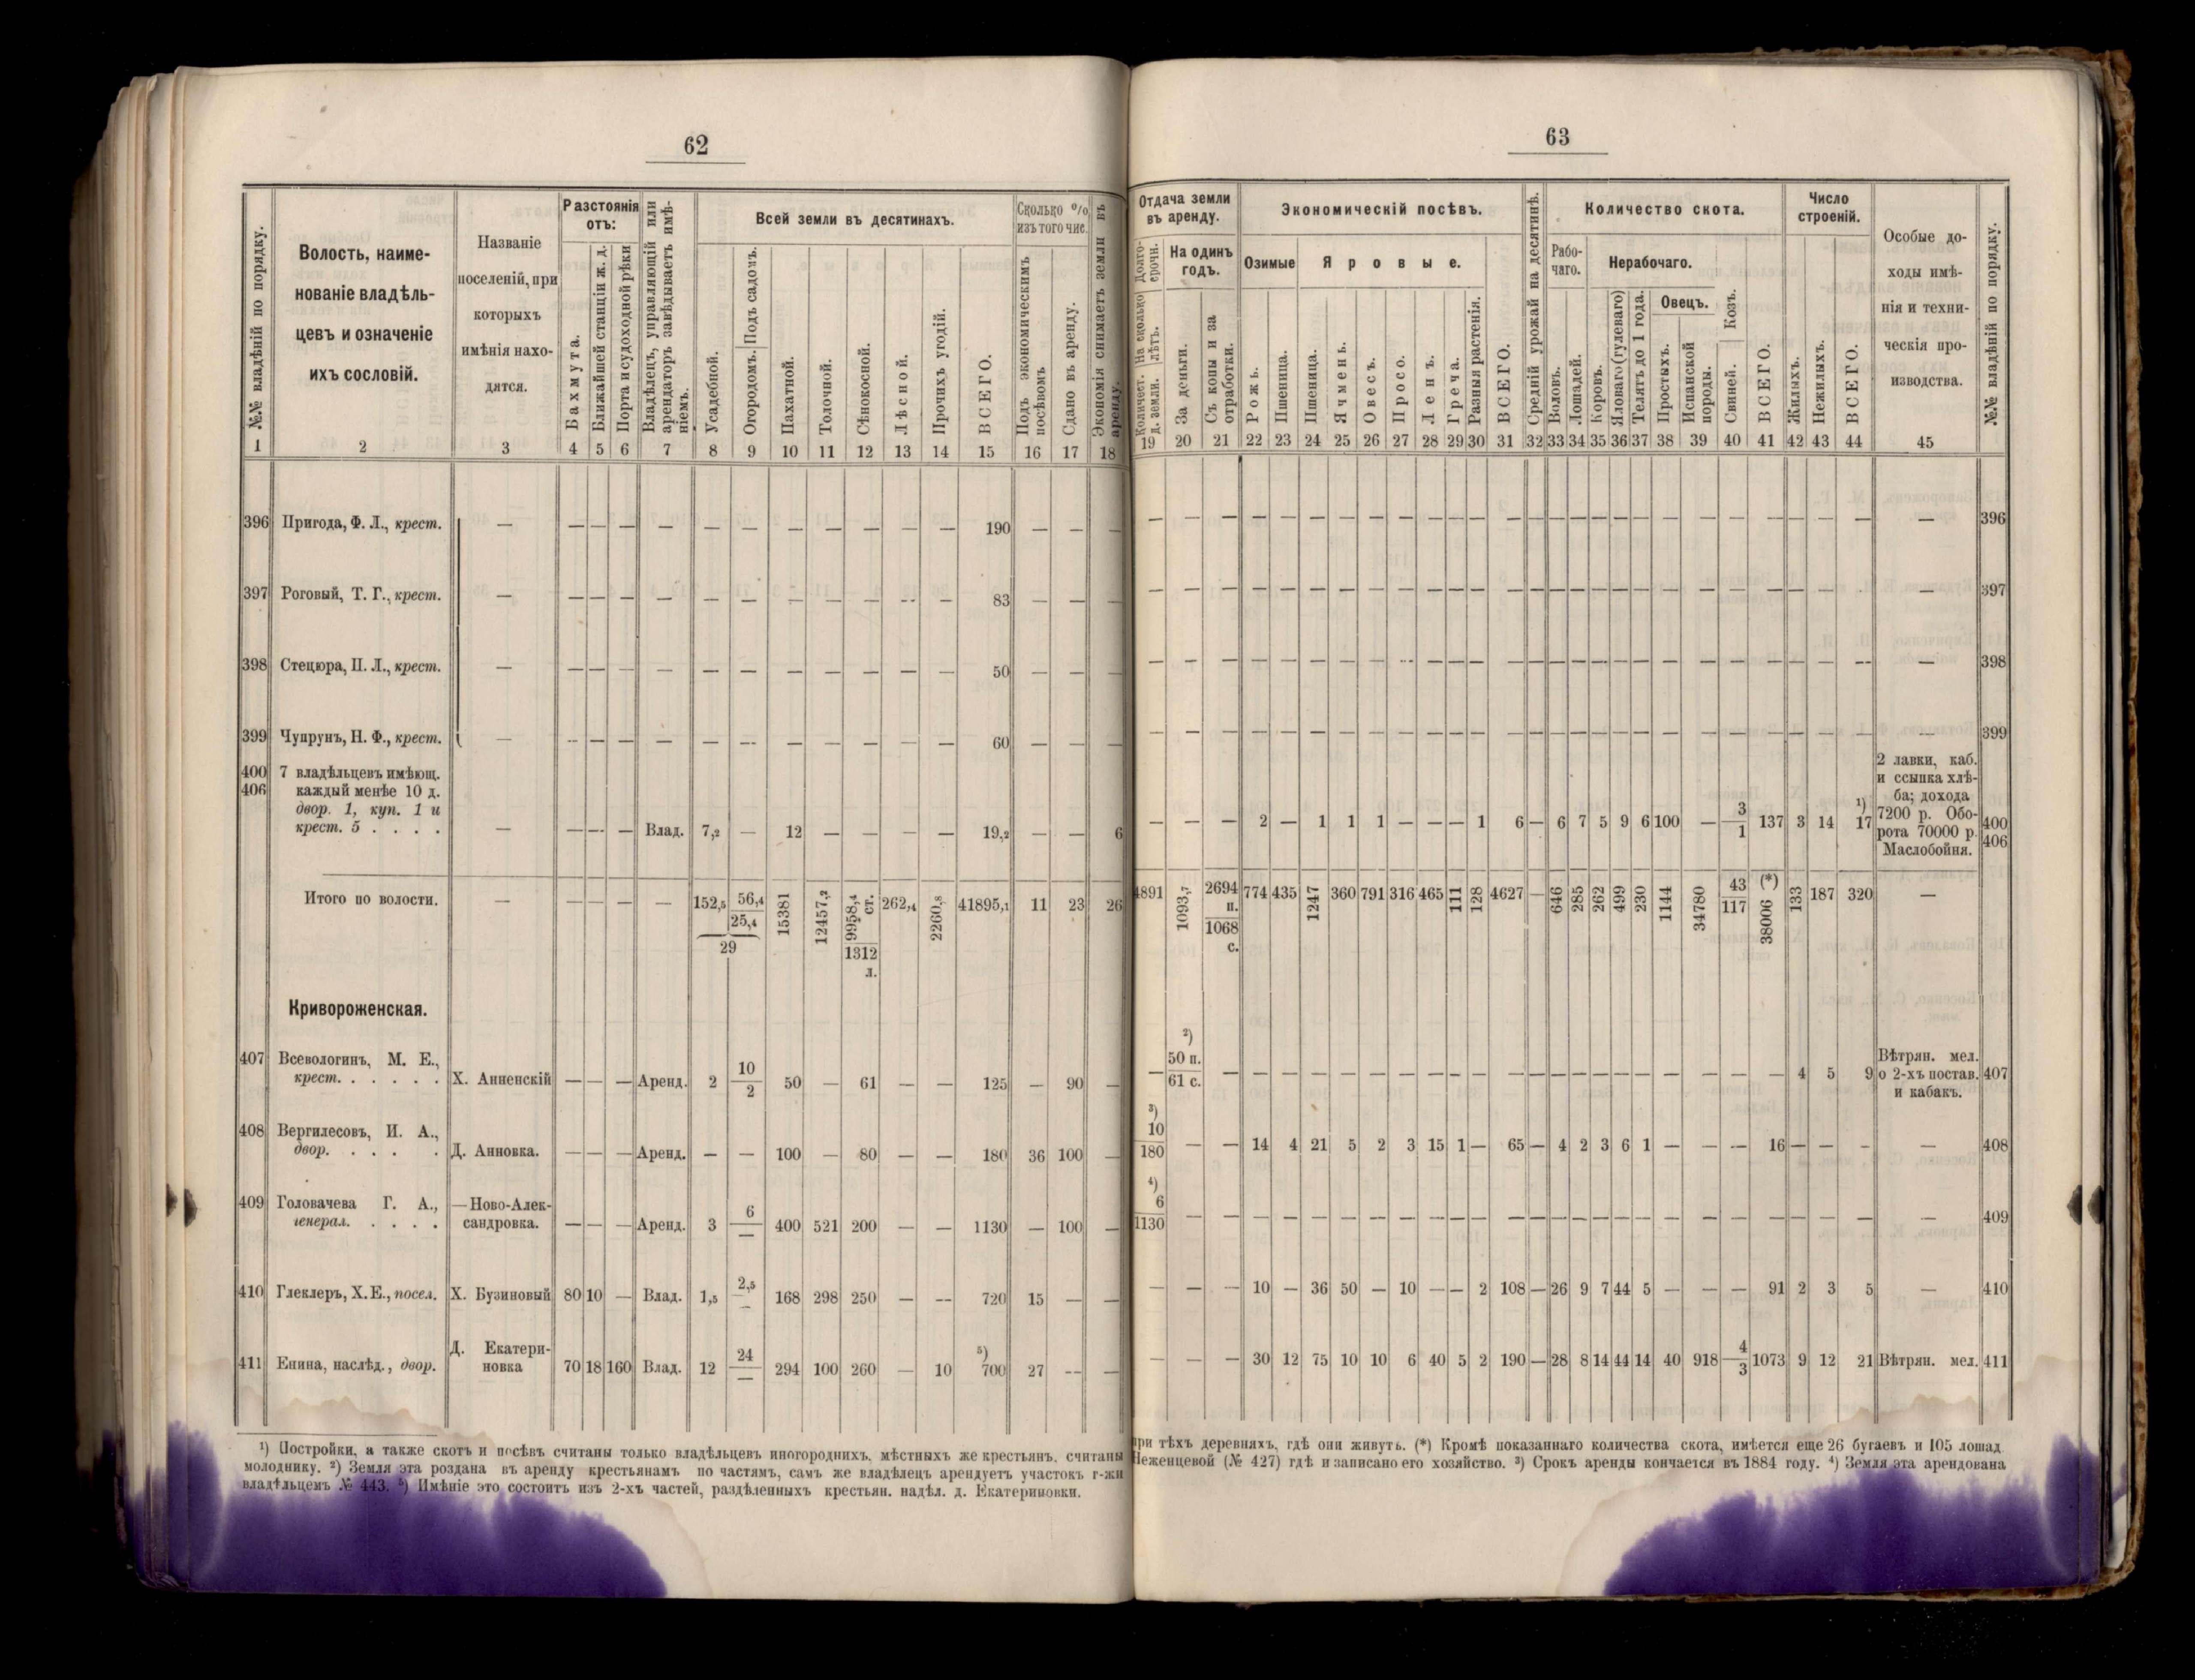 62
№№ владѣній по порядку.
Волость, наиме-
нованіе владѣль-
цевъ и означеніе
ихъ сословій.
Названіе
поселеній, при
которыхъ
имѣнія нахо-
дятся.
Разстоянія
отъ:
Бахмута.
Ближайшей станціи ж. д.
Порта и судоходной рѣки
Владѣлецъ, управляющій или
арендаторъ завѣдываетъ имѣ-
ніемъ.
Всей земли въ десятинахъ.
Усадебной.
Огородомъ. Подъ садомъ.
Пахатной.
Толочной.
Сѣнокосной.
Лѣсной.
Прочихъ угодій.
ВСЕГО.
Сколько %
изъ того чис.
Подъ экономическимъ
посѣвомъ
Сдано въ аренду.
Экономія снимаетъ земли въ
аренду.
1 2 3 4 5 6 7 8 9 10 11 12 13 14 15 16 17 18
396 Пригода, Ф. Л., крест. — — — — — — — — — — — — 190 — — —
397 Роговый, Т. Г., крест. — — — — — — — — — — — — 83 — — —
398 Стецюра, П. Л., крест. — — — — — — — — — — — — 50 — — —
399 Чупрунъ, Н. Ф., крест. — — — — — — — — — — — — 60 — — —
400 7 владѣльцевъ имѣющ.
406 каждый менѣе 10 д.
двор. 1, куп. 1 и
крест. 5 . . . . — — — — Влад. 7,2 — 12 — — — — 19,2 — — 6
Итого по волости. — — — — — 152,5 56,4 15381 12457,2 9958,4 ст. 262,4 2260,8 41895,1 11 23 26
25,4
29
1312
л.
Кривороженская.
407 Всевологинъ, М. Е.,
крест. . . . . . Х. Анненскій — — — Аренд. 2 10/2 50 — 61 — — 125 — 90 —
408 Вергилесовъ, И. А.,
двор. . . . . . Д. Анновка. — — — Аренд. — — 100 — 80 — — 180 36 100 —
409 Головачева Г. А., — Ново-Алек-
генерал. . . . . сандровка. — — — Аренд. 3 6/— 400 521 200 — — 1130 — 100 —
410 Глеклеръ, Х. Е., посел. Х. Бузиновый 80 10 — Влад. 1,5 2,5/— 168 298 250 — — 720 15 — —
411 Енина, наслѣд., двор. Д. Екатери-
новка 70 18 160 Влад. 12 24/— 294 100 260 — 10 ⁵) 700 27 — —
¹) Постройки, а также скотъ и посѣвъ считаны только владѣльцевъ иногороднихъ, мѣстныхъ же крестьянъ, считаны
молоднику. ²) Земля эта роздана въ аренду крестьянамъ по частямъ, самъ же владѣлецъ арендуетъ участокъ г-жи
владѣльцемъ № 443. ⁵) Имѣніе это состоитъ изъ 2-хъ частей, раздѣленныхъ крестьян. надѣл. д. Екатериновки.
63
Отдача земли
въ аренду.
Долго-
срочн.
На одинъ
годъ.
Количест. На сколько
д. земли. лѣтъ.
За деньги.
Съ копы и за
отработки.
Экономическій посѣвъ.
Озимые
Яровые.
Рожь.
Пшеница.
Пшеница.
Ячмень.
Овесъ.
Просо.
Ленъ.
Греча.
Разныя растенія.
ВСЕГО.
Средній урожай на десятинѣ.
Количество скота.
Рабо-
чаго.
Нерабочаго.
Воловъ.
Лошадей.
Коровъ.
Яловаго (гулеваго)
Телятъ до 1 года.
Овецъ.
Простыхъ.
Испанской
породы.
Свиней. Козъ.
ВСЕГО.
Число
строеній.
Жилыхъ.
Нежилыхъ.
ВСЕГО.
Особые до-
ходы имѣ-
нія и техни-
ческія про-
изводства.
№№ владѣній по порядку.
19 20 21 22 23 24 25 26 27 28 29 30 31 32 33 34 35 36 37 38 39 40 41 42 43 44 45
— — — — — — — — — — — — — — — — — — — — — — — — — — — 396
— — — — — — — — — — — — — — — — — — — — — — — — — — — 397
— — — — — — — — — — — — — — — — — — — — — — — — — — — 398
— — — — — — — — — — — — — — — — — — — — — — — — — — — 399
2 лавки, каб.
и ссыпка хлѣ-
ба; дохода
7200 р. Обо-
рота 70000 р.
Маслобойня.
— — — 2 — 1 1 1 — — — 1 6 — 6 7 5 9 6 100 — 3/1 137 3 14 ¹) 17 400
406
4891 1093,7 2694 п./1068 с. 774 435 1247 360 791 316 465 111 128 4627 — 646 285 262 499 230 1144 34780 43/117 38006 (*) 133 187 320 —
— ²) 50 п./61 с. — — — — — — — — — — — — — — — — — — — — — 4 5 9 Вѣтрян. мел.
о 2-хъ постав. 407
и кабакъ.
³) 10/180 — — 14 4 21 5 2 3 15 1 — 65 — 4 2 3 6 1 — — — 16 — — — — 408
⁴) 6/1130 — — — — — — — — — — — — — — — — — — — — — — — — — — 409
— — — 10 — 36 50 — 10 — — 2 108 — 26 9 7 44 5 — — — 91 2 3 5 — 410
— — — 30 12 75 10 10 6 40 5 2 190 — 28 8 14 44 14 40 918 4/3 1073 9 12 21 Вѣтрян. мел. 411
при тѣхъ деревняхъ, гдѣ они живутъ. (*) Кромѣ показаннаго количества скота, имѣется еще 26 бугаевъ и 105 лошад.
Неженцевой (№ 427) гдѣ и записано его хозяйство. ³) Срокъ аренды кончается въ 1884 году. ⁴) Земля эта арендована